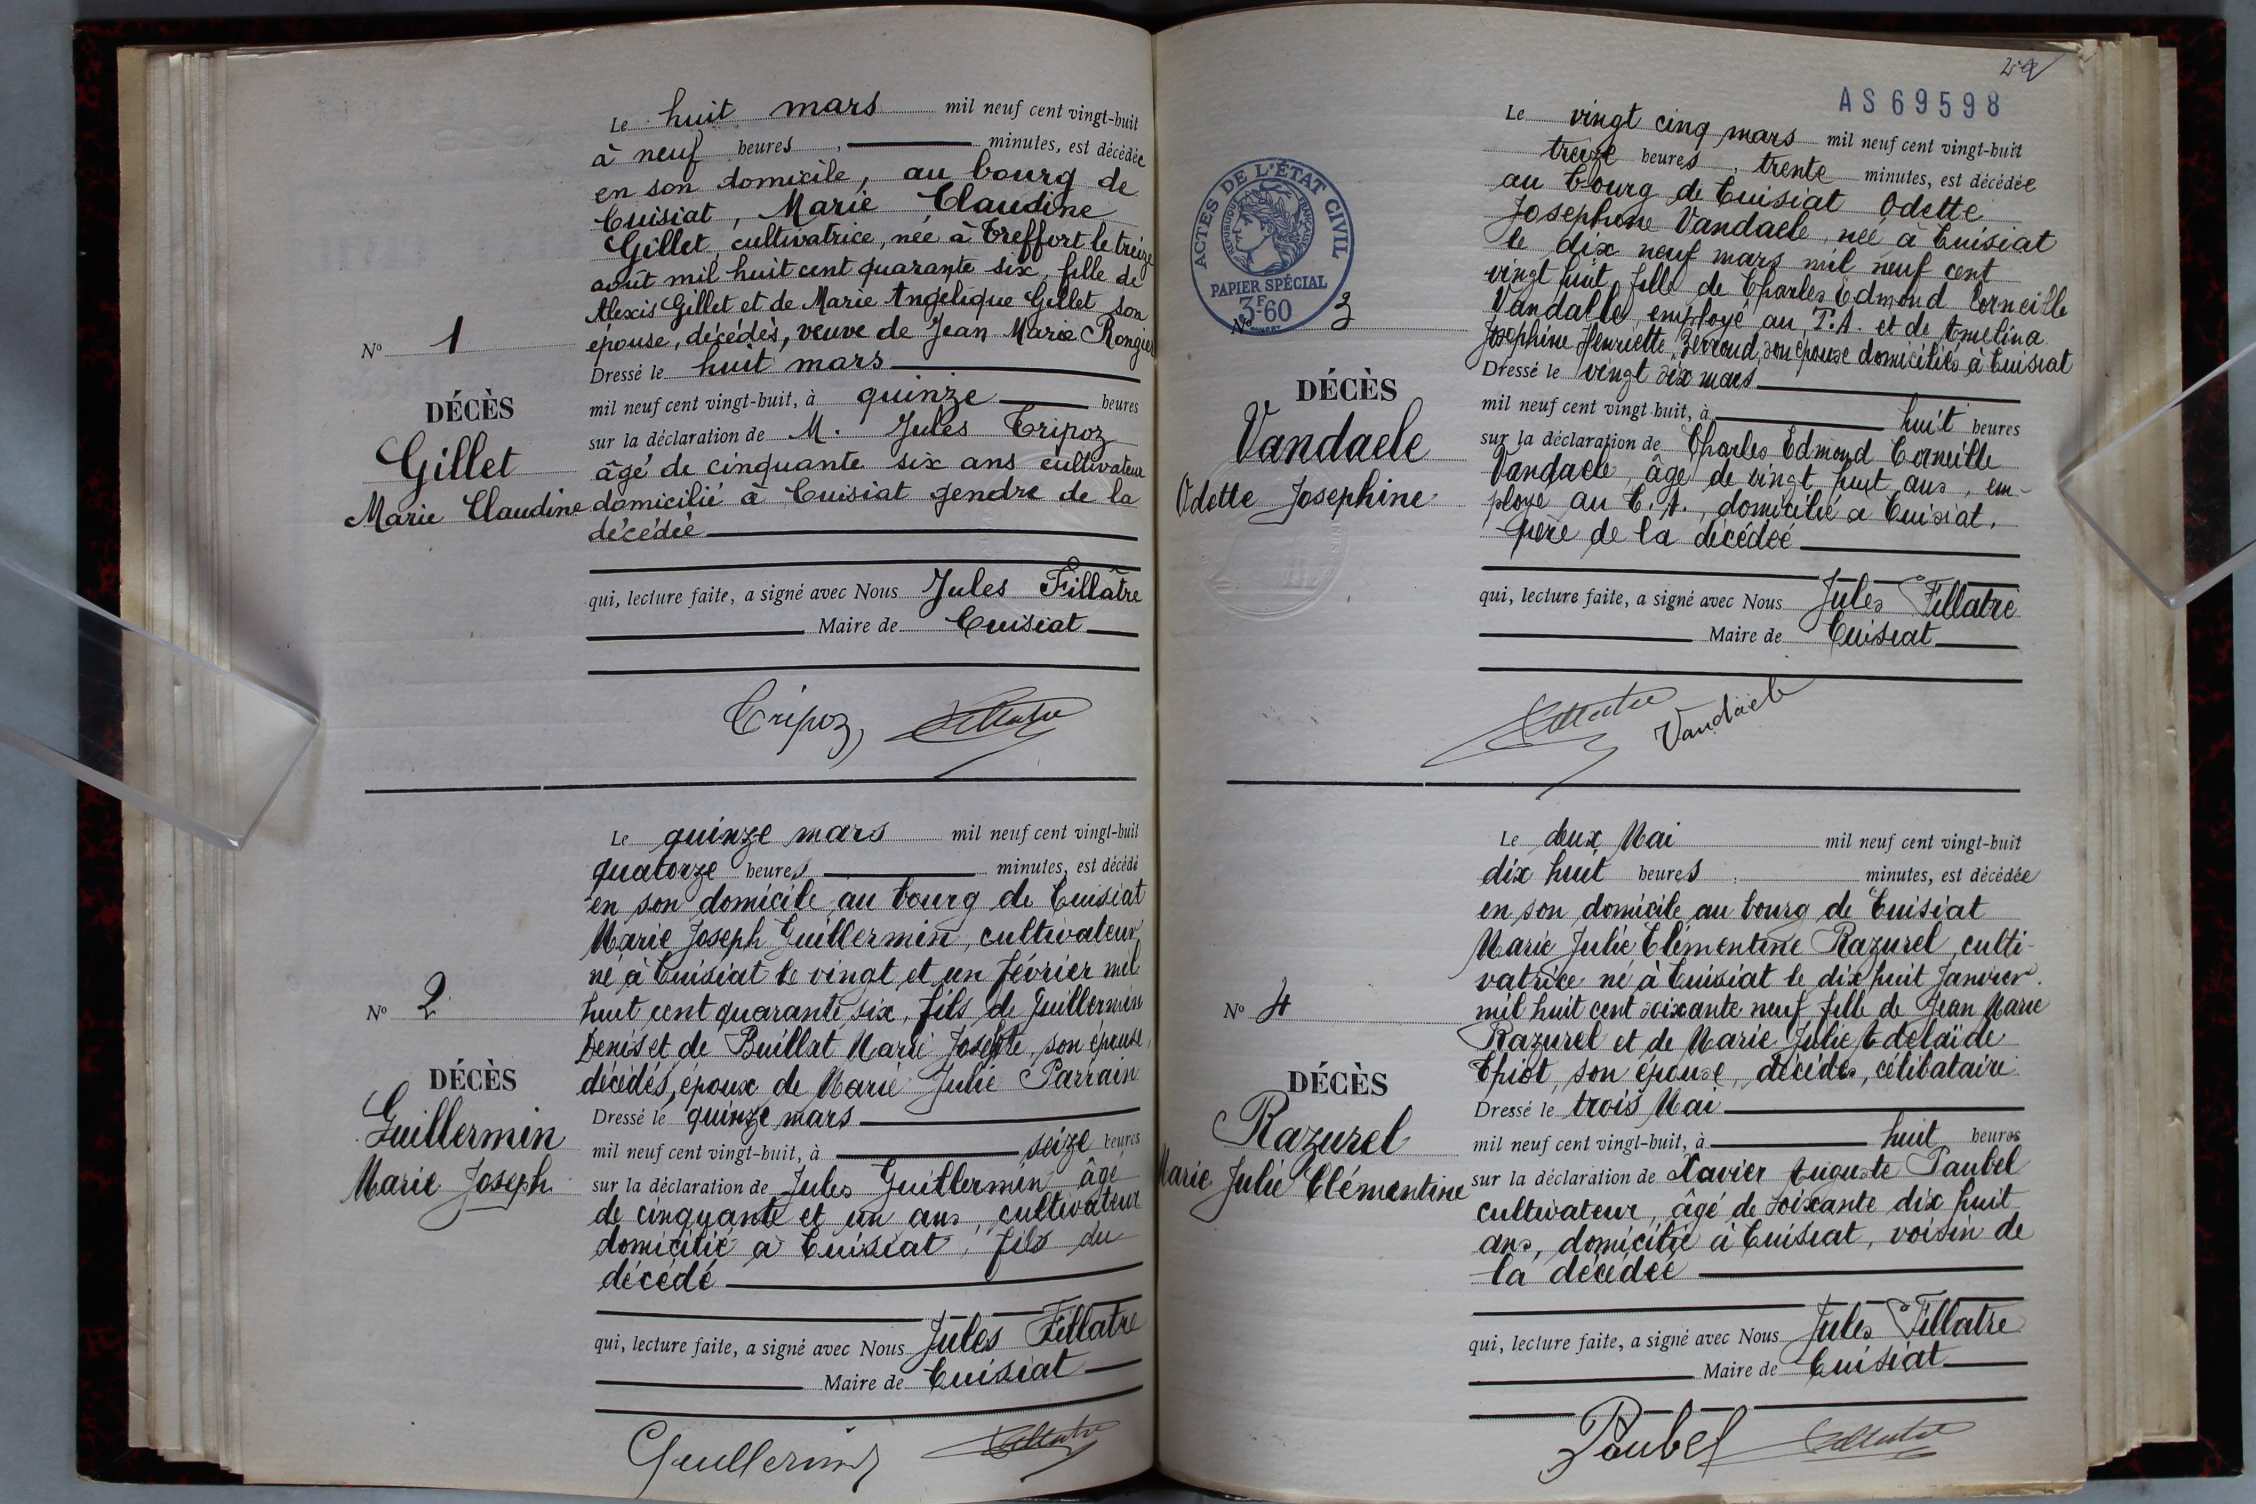 Le huit mars mil neuf cent vingt-huit
à neuf heures, minutes, est décédée
en son domicile, au bourg de
Cuisiat, Marie Claudine
Gillet, cultivatrice, née à Treffort le treize
août mil huit cent quarante six, fille de
Alexis Gillet et de Marie Angélique Gillet son
épouse, décédés, veuve de Jean Marie Rongier
Nº 1
Dressé le huit mars
DÉCÈS
mil neuf cent vingt-huit, à quinze heures
Gillet
sur la déclaration de M. Jules Tripoz
âgé de cinquante six ans cultivateur
Marie Claudine
domicilié à Cuisiat gendre de la
décédée
qui, lecture faite, a signé avec Nous Jules Fillâtre
Maire de Cuisiat
Tripoz Fillatre
Le quinze mars mil neuf cent vingt-huit
quatorze heures minutes, est décédé
en son domicile au bourg de Cuisiat
Marie Joseph Guillermin, cultivateur
né à Cuisiat le vingt et un février mil
Nº 2
huit cent quarante six, fils de Guillermin
Denis et de Buillat Marie Josephte, son épouse,
décédés, époux de Marie Julie Parrain
DÉCÈS
Dressé le quinze mars
Guillermin
mil neuf cent vingt-huit, à seize heures
Marie Joseph
sur la déclaration de Jules Guillermin âgé
de cinquante et un ans, cultivateur
domicilié à Cuisiat, fils du
décédé
qui, lecture faite, a signé avec Nous Jules Fillatre
Maire de Cuisiat
Guillermin Fillatre
AS 69598
Le vingt cinq mars mil neuf cent vingt-huit
treize heures, trente minutes, est décédée
au bourg de Cuisiat Odette
Josephine Vandaele, née à Cuisiat
le dix neuf mars mil neuf cent
vingt huit, fille de Charles Edmond Corneille
Vandalle, employé au T.A. et de Amelina
Josephine Henriette, son épouse domiciliés à Cuisiat
ACTES DE L'ÉTAT CIVIL
RÉPUBLIQUE FRANÇAISE
PAPIER SPÉCIAL
3F60
Nº 3
Dressé le vingt six mars
DÉCÈS
mil neuf cent vingt-huit, à huit heures
Vandaele
sur la déclaration de Charles Edmond Corneille
Vandaele, âgé de vingt huit ans, em-
Odette Josephine
ployé au T.A., domicilié à Cuisiat,
père de la décédée
qui, lecture faite, a signé avec Nous Jules Fillatre
Maire de Cuisiat
Fillatre Vandaele
Le deux Mai mil neuf cent vingt-huit
dix huit heures minutes, est décédée
en son domicile au bourg de Cuisiat
Marie Julie Clémentine Razurel, culti-
vatrice né à Cuisiat le dix huit Janvier
Nº 4
mil huit cent soixante neuf fille de Jean Marie
Razurel et de Marie Julie Adelaïde
Chiot, son épouse, décédés, célibataire
DÉCÈS
Dressé le trois Mai
Razurel
mil neuf cent vingt-huit, à huit heures
Marie Julie Clémentine
sur la déclaration de Xavier Auguste Paubel
cultivateur, âgé de soixante dix huit
ans, domicilié à Cuisiat, voisin de
la décédée
qui, lecture faite, a signé avec Nous Jules Fillatre
Maire de Cuisiat
Paubel Fillatre